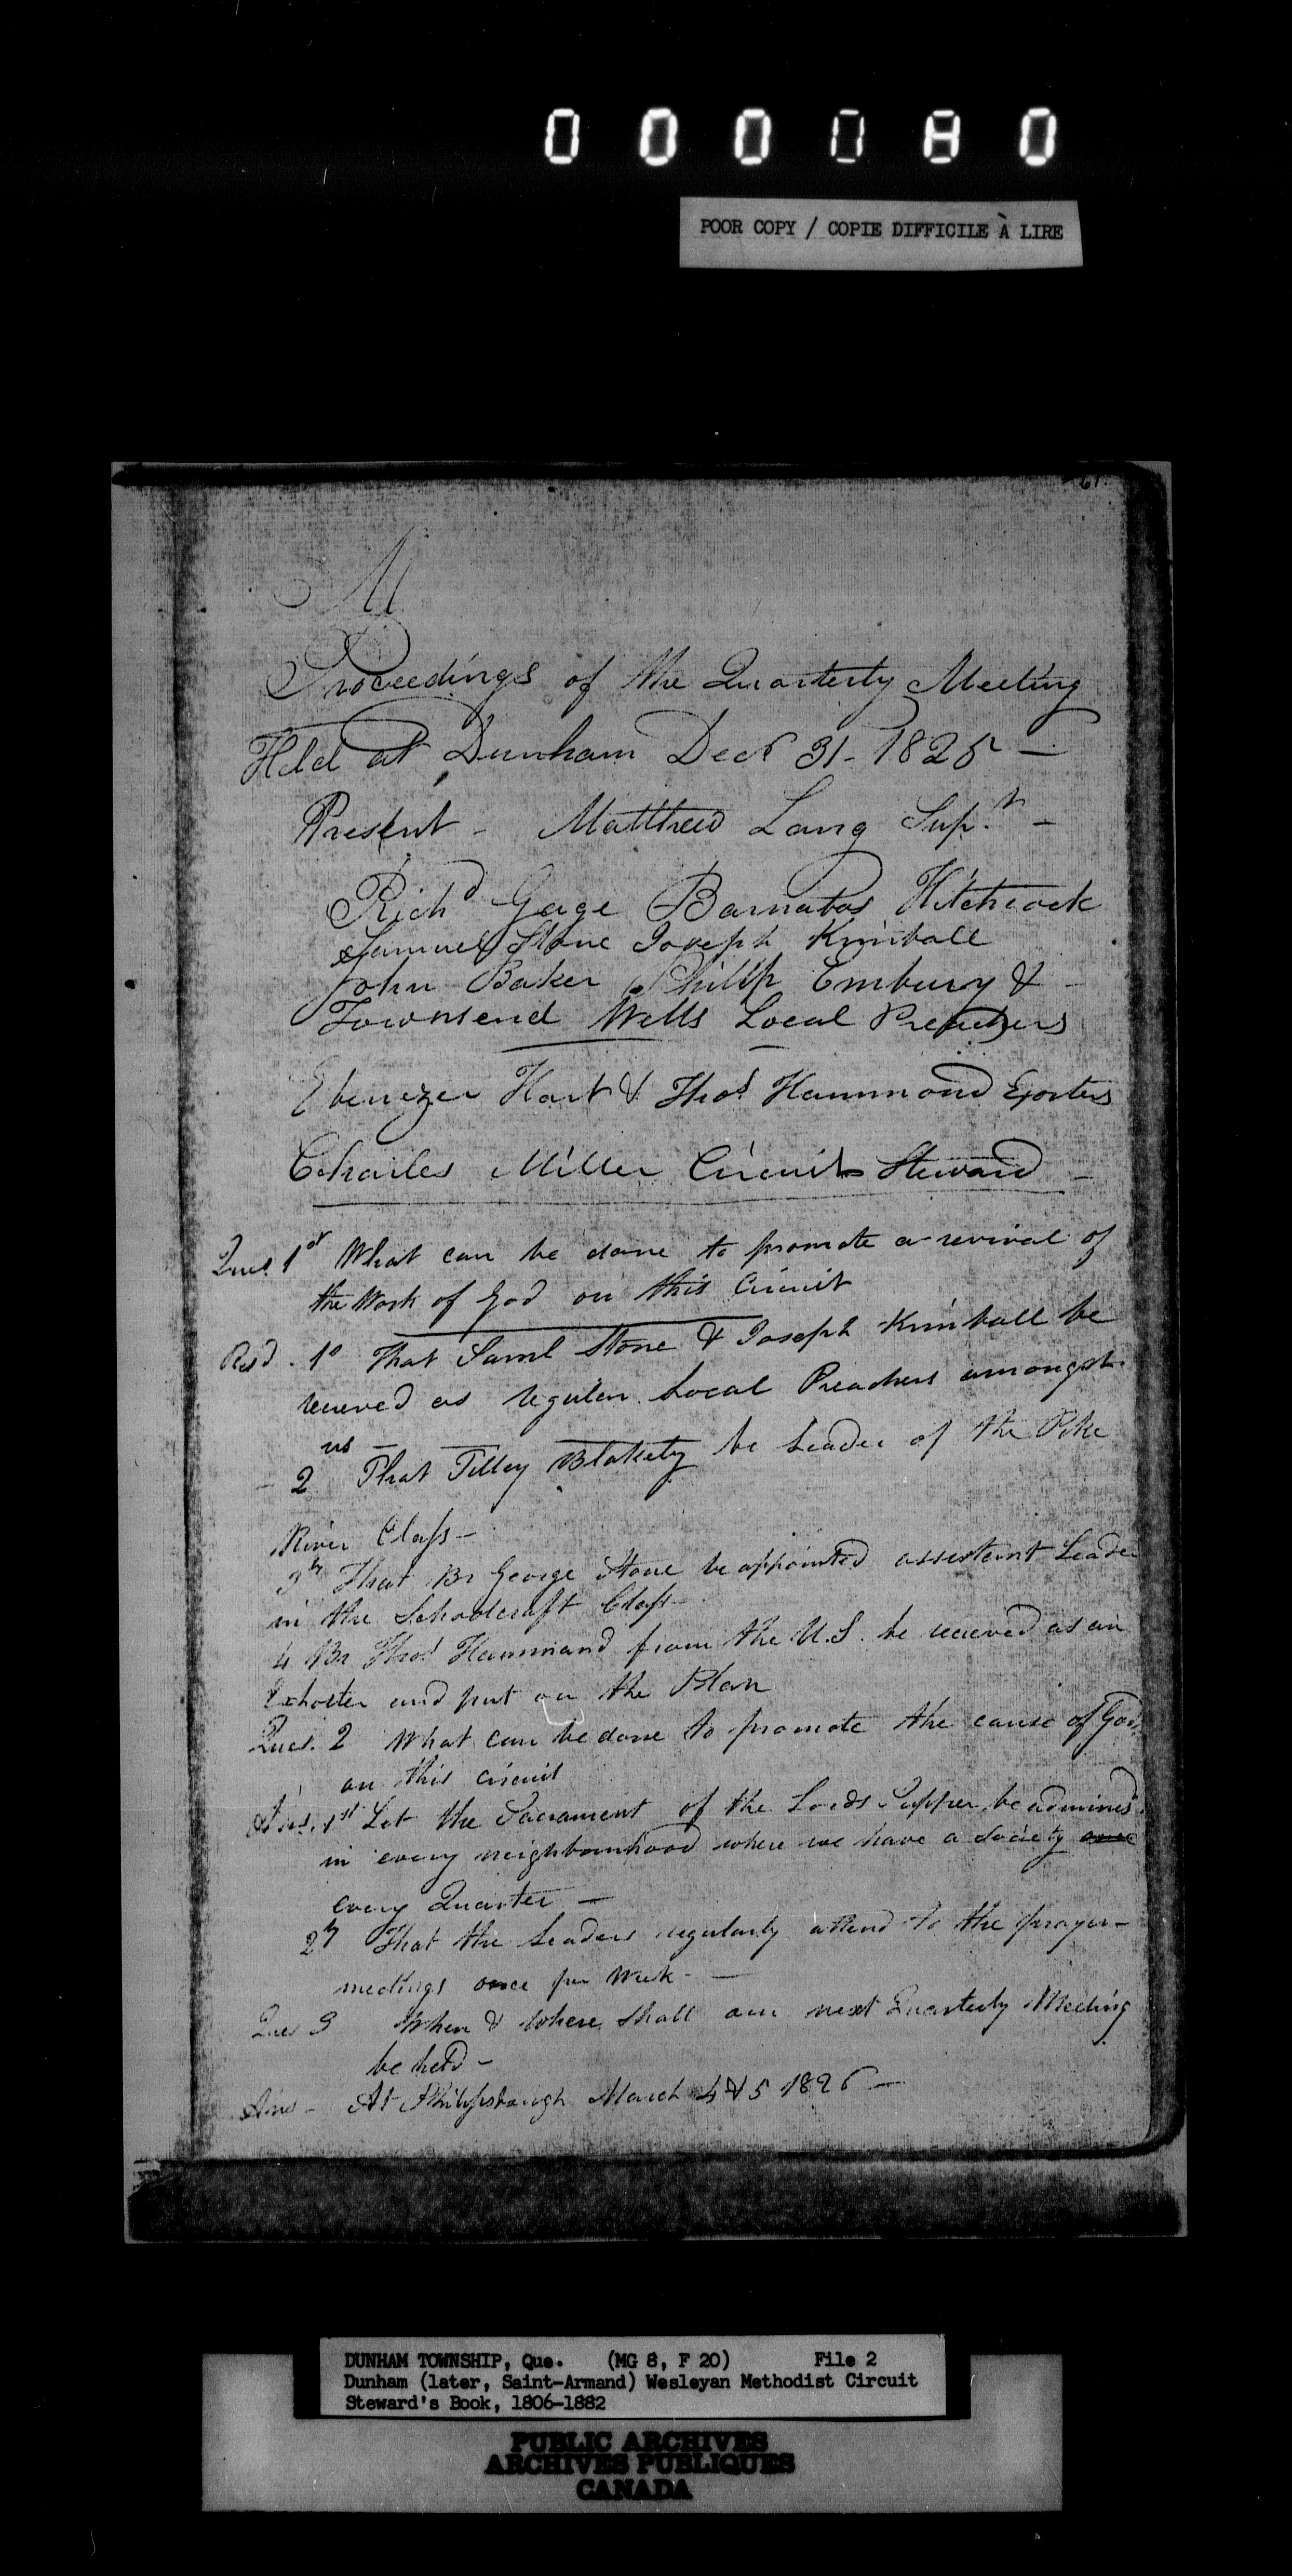 000180
POOR COPY / COPIE DIFFICILE À LIRE
61.
M
Proceedings of the Quarterly Meeting
Held at Dunham Decr 31 - 1825 —
Present - Matthew Lang Supt. -
Richd Gage Barnabas Hitchcock
Samuel Stone Joseph Kimball
John Baker Philip Embury & -
Townsend Wells Local Preachers
Ebenezer Hart & Thos Hammond Exorters
Charles Miller Circuit Steward -
Ques. 1st What can be done to promote a revival of
the Work of God on this Circuit
Resd. 1o That Saml Stone & Joseph Kimball be
recieved as regular Local Preachers amongst
us -
- 2 That Tilley Blakely be Leader of the Pike
River Class -
3ly That Br George Stone be appointed assistant Leader
in the Schoolcraft Class -
4 Br Thos Hammond from the U.S. be recieved as an
Exhorter and put on the Plan
Ques. 2 What can be done to promote the cause of God
on this circuit
Ans. 1st Let the Sacrament of the Lords Supper be adminesd
in every neighbourhood where we have a Society once
every Quarter —
2ly That the Leaders regularly attend to the prayer -
meetings once per Week - —
Ques 3 When & Where shall our next Quarterly Meeting
be held -
Ans - At Philipsburgh March 4 & 5 1826 —
DUNHAM TOWNSHIP, Que. (MG 8, F 20) File 2
Dunham (later, Saint-Armand) Wesleyan Methodist Circuit
Steward's Book, 1806-1882
PUBLIC ARCHIVES
ARCHIVES PUBLIQUES
CANADA